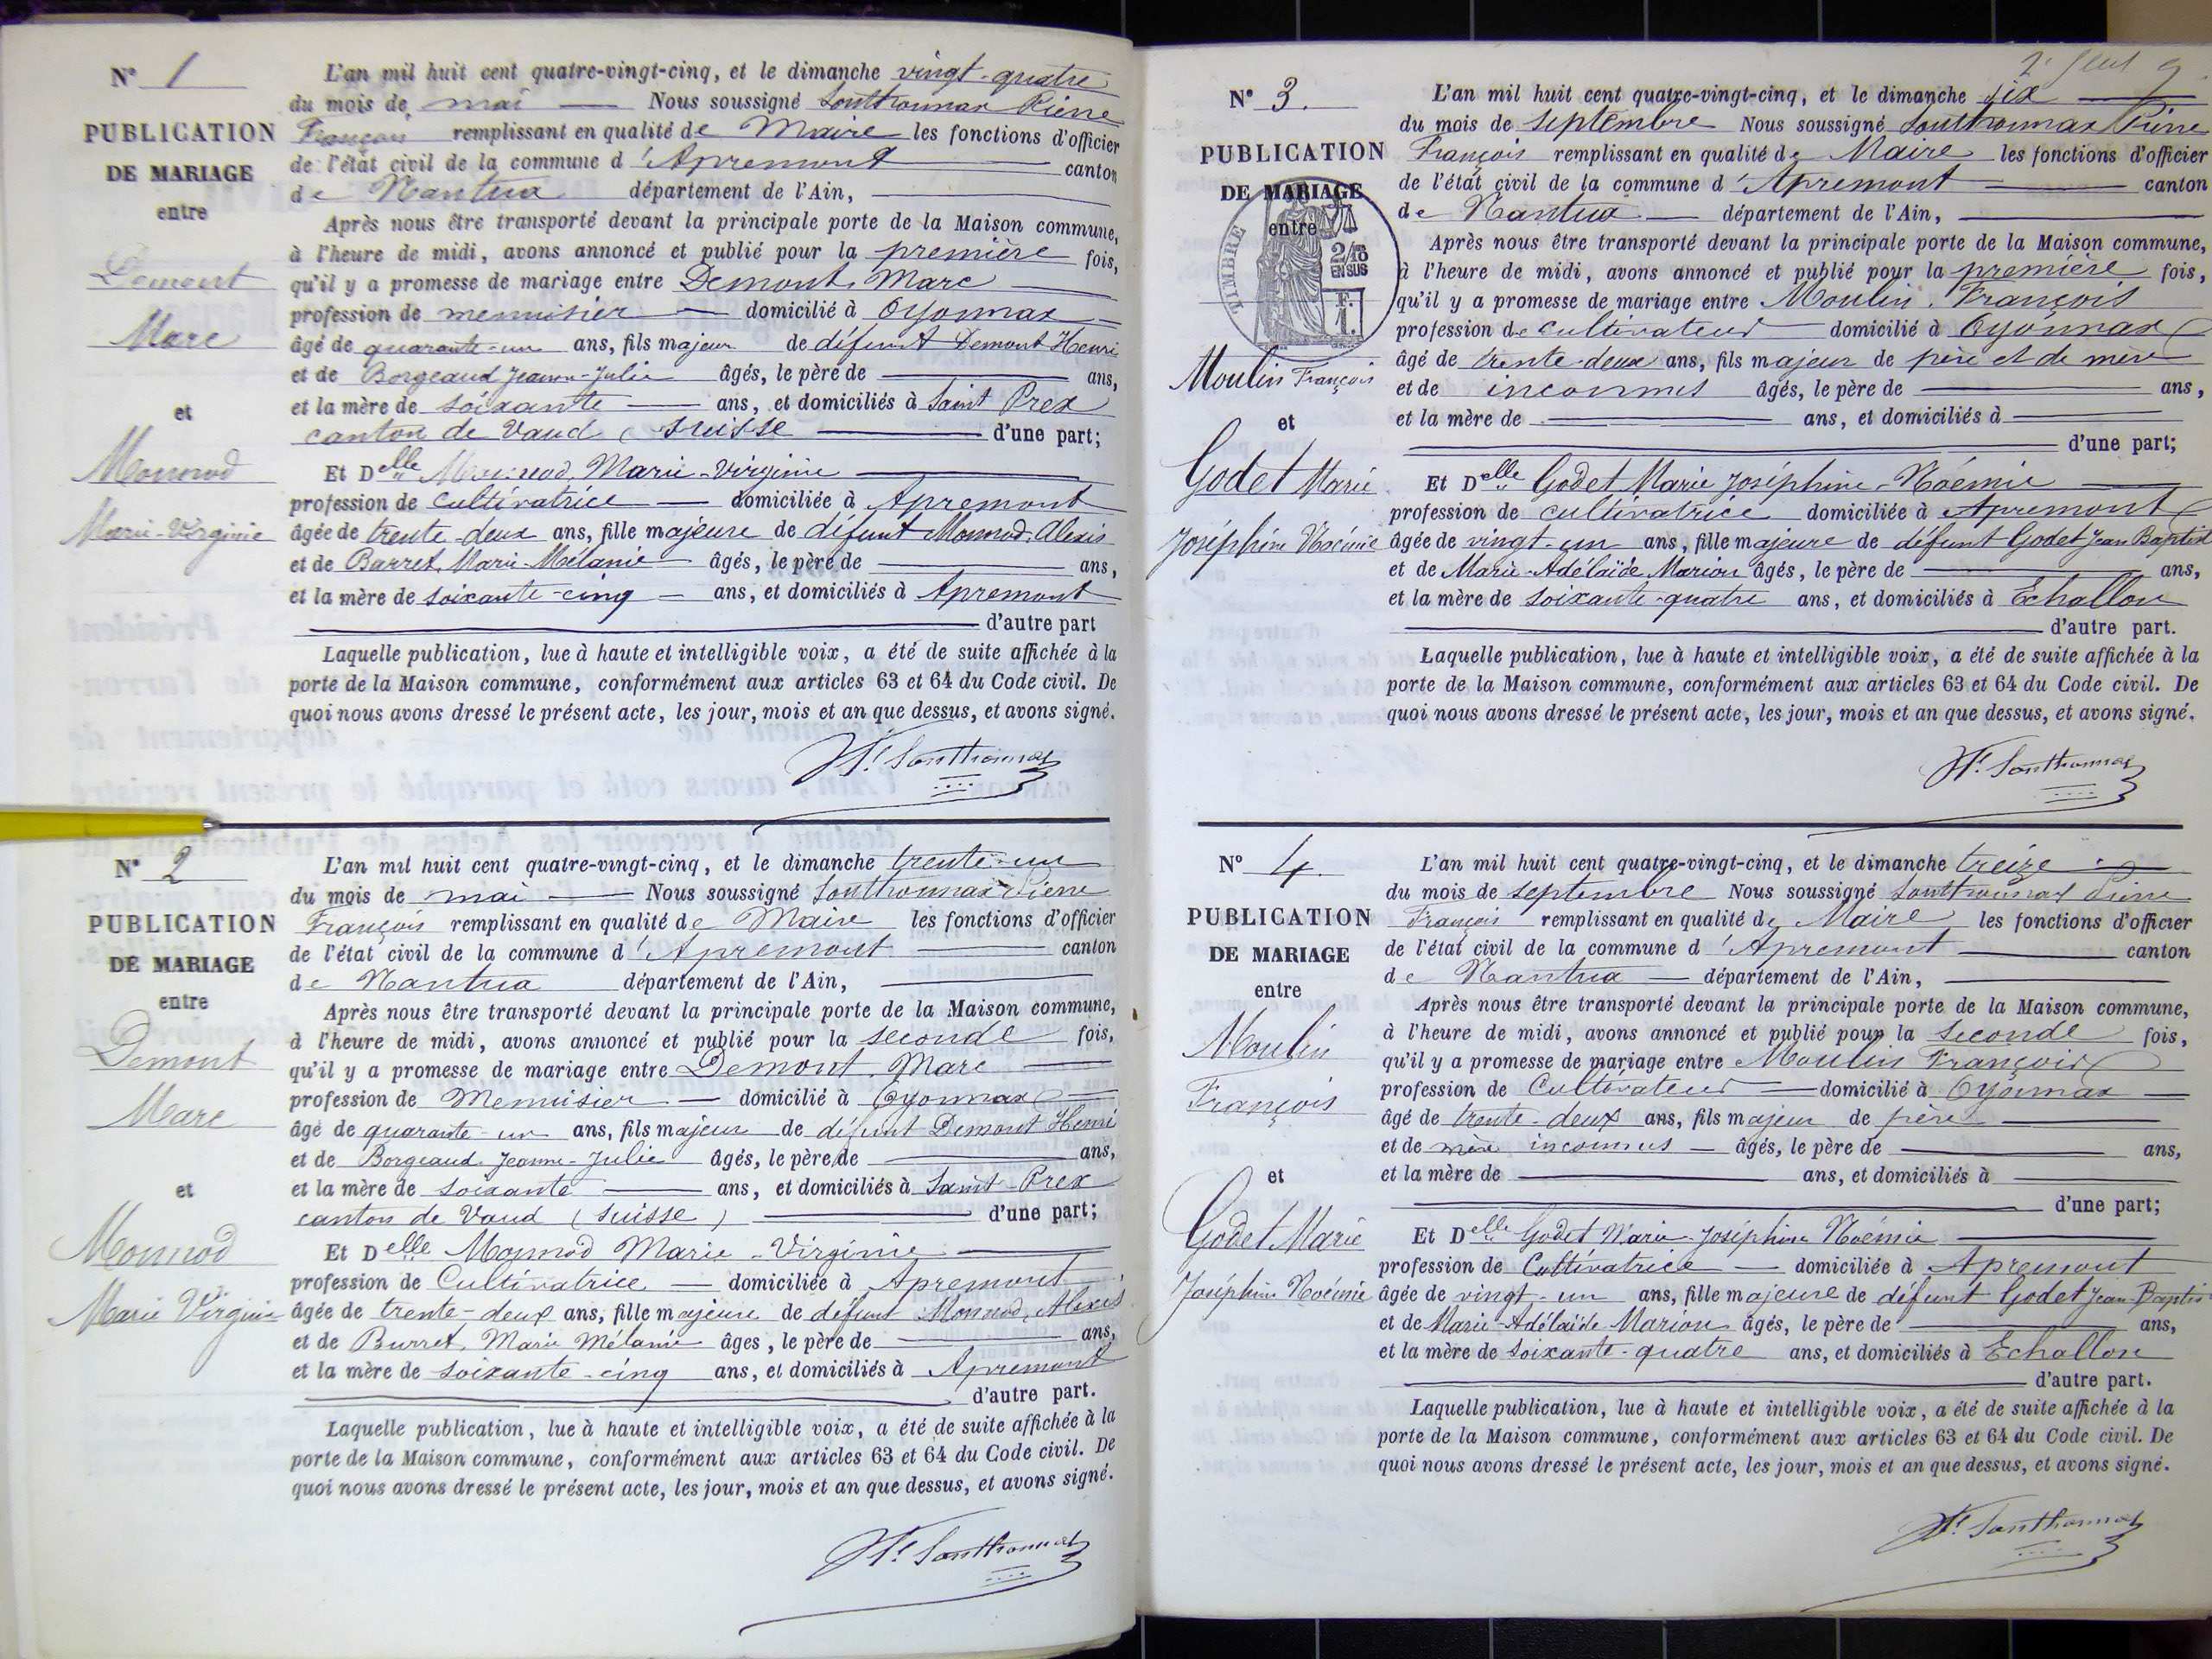 N° 1
PUBLICATION
DE MARIAGE
entre
Demont
Marc
et
Monnod
Marie-Virginie
L'an mil huit cent quatre-vingt-cinq, et le dimanche vingt-quatre
du mois de mai Nous soussigné Sonthonnax Pierre
François remplissant en qualité de Maire les fonctions d'officier
de l'état civil de la commune d'Apremont canton
de Nantua département de l'Ain,
Après nous être transporté devant la principale porte de la Maison commune,
à l'heure de midi, avons annoncé et publié pour la première fois,
qu'il y a promesse de mariage entre Demont, Marc
profession de menuisier domicilié à Oyonnax
âgé de quarante-un ans, fils majeur de défunt Demont Henri
et de Borgeaud Jeanne-Julie âgés, le père de ans,
et la mère de soixante ans, et domiciliés à Saint Prex
canton de Vaud (Suisse d'une part;
Et Delle Monnod, Marie-Virginie
profession de cultivatrice domiciliée à Apremont
âgée de trente-deux ans, fille majeure de défunt Monnod, Alexis
et de Barret, Marie-Mélanie âgés, le père de ans,
et la mère de soixante-cinq ans, et domiciliés à Apremont
d'autre part
Laquelle publication, lue à haute et intelligible voix, a été de suite affichée à la
porte de la Maison commune, conformément aux articles 63 et 64 du Code civil. De
quoi nous avons dressé le présent acte, les jour, mois et an que dessus, et avons signé.
Sonthonnax
N° 2
PUBLICATION
DE MARIAGE
entre
Demont
Marc
et
Monnod
Marie Virginie
L'an mil huit cent quatre-vingt-cinq, et le dimanche trente-un
du mois de mai Nous soussigné Sonthonnax Pierre
François remplissant en qualité de Maire les fonctions d'officier
de l'état civil de la commune d'Apremont canton
de Nantua département de l'Ain,
Après nous être transporté devant la principale porte de la Maison commune,
à l'heure de midi, avons annoncé et publié pour la seconde fois,
qu'il y a promesse de mariage entre Demont, Marc
profession de Menuisier domicilié à Oyonnax
âgé de quarante-un ans, fils majeur de défunt Demont Henri
et de Borgeaud Jeanne-Julie âgés, le père de ans,
et la mère de soixante ans, et domiciliés à Saint-Prex
canton de Vaud (Suisse) d'une part;
Et Delle Monnod Marie-Virginie
profession de Cultivatrice domiciliée à Apremont
âgée de trente-deux ans, fille majeure de défunt Monnod, Alexis
et de Burret, Marie Mélanie âges, le père de ans,
et la mère de soixante-cinq ans, et domiciliés à Apremont
d'autre part.
Laquelle publication, lue à haute et intelligible voix, a été de suite affichée à la
porte de la Maison commune, conformément aux articles 63 et 64 du Code civil. De
quoi nous avons dressé le présent acte, les jour, mois et an que dessus, et avons signé.
Sonthonnax
N° 3.
PUBLICATION
DE MARIAGE
entre
TIMBRE
2/10
EN SUS
F.
1.
Moulin François
et
Godet Marie
Joséphine Noémie
L'an mil huit cent quatre-vingt-cinq, et le dimanche six
du mois de septembre Nous soussigné Sonthonnax Pierre
François remplissant en qualité de Maire les fonctions d'officier
de l'état civil de la commune d'Apremont canton
de Nantua département de l'Ain,
Après nous être transporté devant la principale porte de la Maison commune,
à l'heure de midi, avons annoncé et publié pour la première fois,
qu'il y a promesse de mariage entre Moulin, François
profession de cultivateur domicilié à Oyonnax
âgé de trente-deux ans, fils majeur de père et de mère
et de inconnus âgés, le père de ans,
et la mère de ans, et domiciliés à
d'une part;
Et Delle Godet Marie Joséphine-Noémie
profession de cultivatrice domiciliée à Apremont
âgée de vingt-un ans, fille majeure de défunt Godet Jean Baptist
et de Marie-Adélaïde Marion âgés, le père de ans,
et la mère de soixante-quatre ans, et domiciliés à Echallon
d'autre part.
Laquelle publication, lue à haute et intelligible voix, a été de suite affichée à la
porte de la Maison commune, conformément aux articles 63 et 64 du Code civil. De
quoi nous avons dressé le présent acte, les jour, mois et an que dessus, et avons signé.
Sonthonnax
N° 4.
PUBLICATION
DE MARIAGE
entre
Moulin
François
et
Godet Marie
Joséphine Noémie
L'an mil huit cent quatre-vingt-cinq, et le dimanche treize
du mois de septembre Nous soussigné Sonthonnax Pierre
François remplissant en qualité de Maire les fonctions d'officier
de l'état civil de la commune d'Apremont canton
de Nantua département de l'Ain,
Après nous être transporté devant la principale porte de la Maison commune,
à l'heure de midi, avons annoncé et publié pour la seconde fois,
qu'il y a promesse de mariage entre Moulin François
profession de Cultivateur domicilié à Oyonnax
âgé de trente-deux ans, fils majeur de père
et de mère inconnus âgés, le père de ans,
et la mère de ans, et domiciliés à
d'une part;
Et Delle Godet Marie-Joséphine Noémie
profession de Cultivatrice domiciliée à Apremont
âgée de vingt-un ans, fille majeure de défunt Godet Jean-Baptis
et de Marie-Adélaïde Marion âgés, le père de ans,
et la mère de soixante-quatre ans, et domiciliés à Echallon
d'autre part.
Laquelle publication, lue à haute et intelligible voix, a été de suite affichée à la
porte de la Maison commune, conformément aux articles 63 et 64 du Code civil. De
quoi nous avons dressé le présent acte, les jour, mois et an que dessus, et avons signé.
Sonthonnax